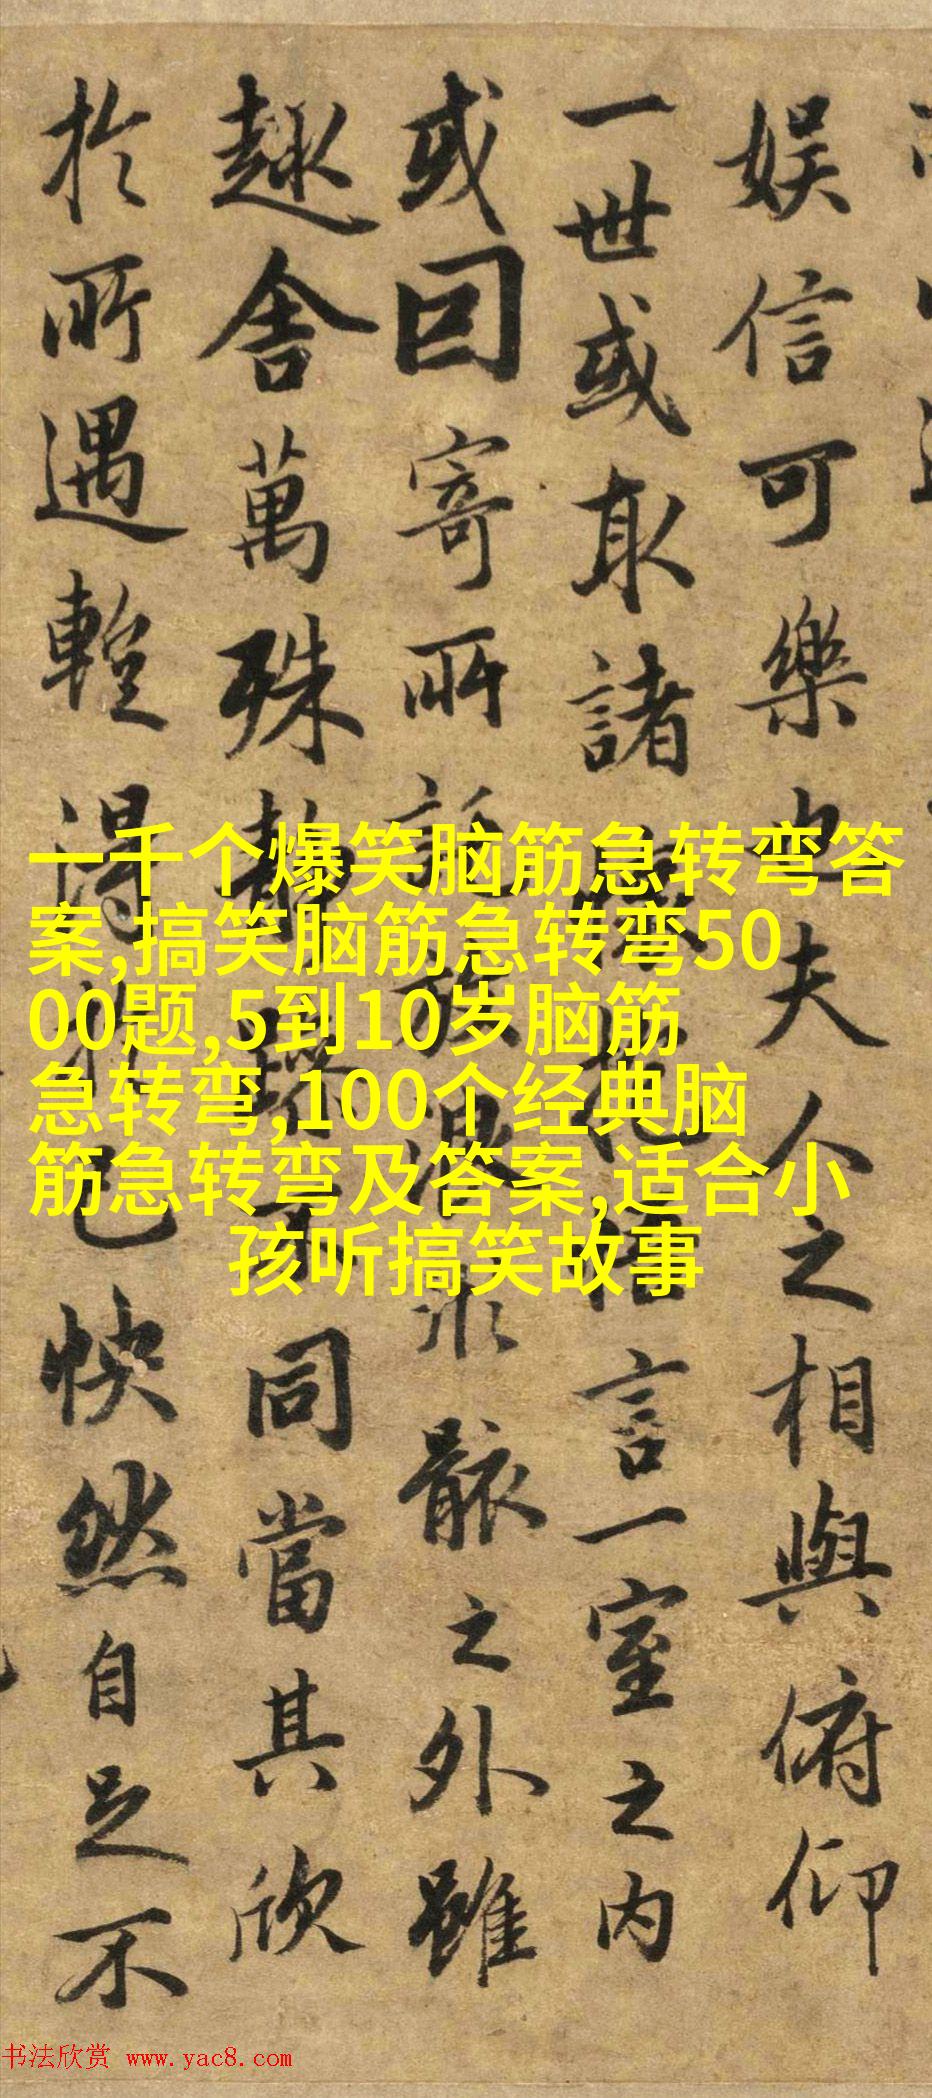 娱信可樂也夫人之相與俯仰
一世或取諸懷抱悟言一室之内
或囙寄所託放浪形骸之外雖
趣舍萬殊静躁不同當其欣
於所遇輙得於己快然自足不
一千个爆笑脑筋急转弯答
案,搞笑脑筋急转弯50
00题,5到10岁脑筋
急转弯,100个经典脑
筋急转弯及答案,适合小
孩听搞笑故事
书法欣赏 www.yac8.com